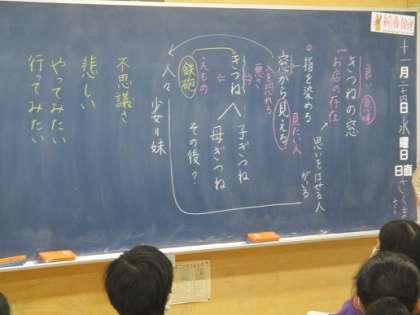 十一月二十四日水曜日
日直
きつねの窓
お店の存在
思いをはせる人
がいる
指を染める
見た人
窓から見える
人を恐れる
悪さ
きつね
子ぎつね
母ぎつね
その後?
えもの
鉄砲
人々
少女・妹
不思議さ
悲しい
やってみたい
行ってみたい